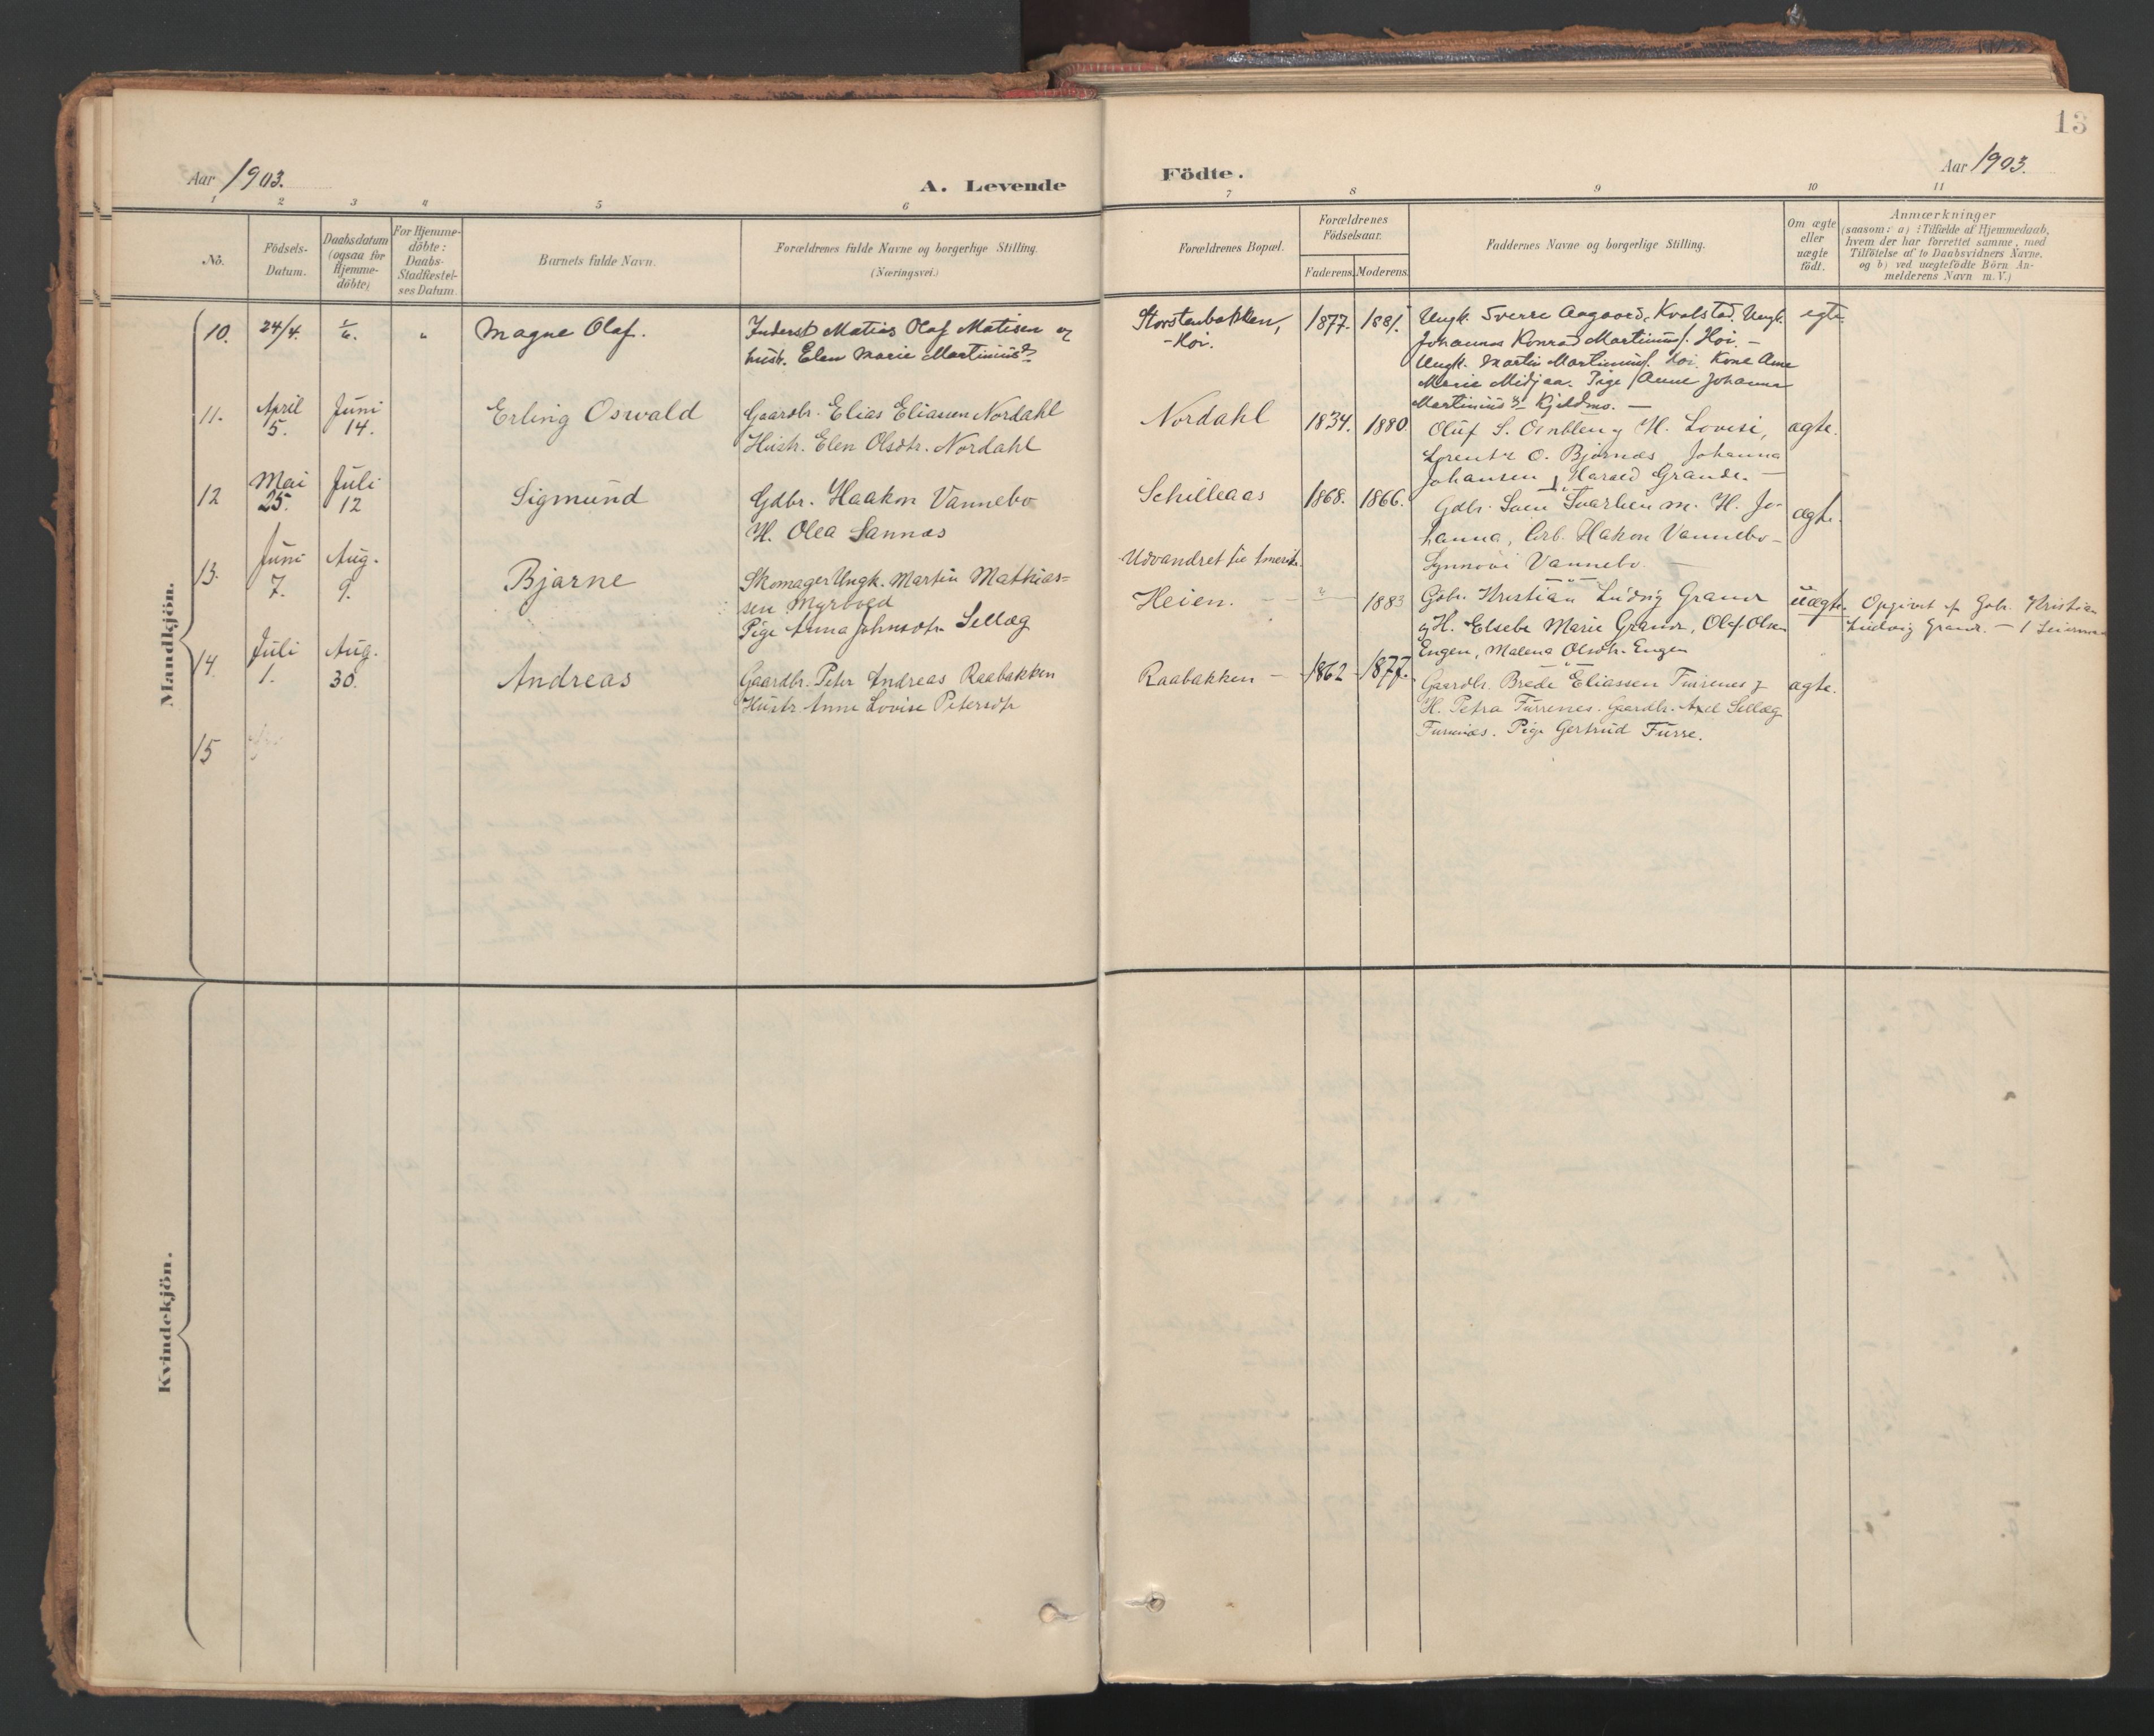 13
Aar 1903.
A. Levende
Födte.
Aar 1903.
1 2 3 4 5 6 7 8 9 10 11
No.
Födsels-
Datum.
Daabsdatum
(ogsaa for
Hjemme-
döbte)
For Hjemme-
döbte:
Daabs-
Stadfæstel-
ses Datum.
Barnets fulde Navn.
Forældrenes fulde Navne og borgerlige Stilling.
(Næringsvei.)
Forældrenes Bopæl.
Forældrenes
Födselsaar.
Faderens. Moderens.
Faddernes Navne og borgerlige Stilling.
Om ægte
eller
uægte
födt.
Anmærkninger
(saasom: a) i Tilfælde af Hjemmedaab,
hvem der har forrettet samme, med
Tilföielse af to Daabsvidners Navne.
og b) ved uægtefödte Börn An-
melderens Navn m. V.)
Mandkjön.
10. 24/4. 1/6. " Magne Olaf.
Inderst Matias Olaf Matisen og
hustr. Elen Marie Martinusdr
Storstenbakken,
-Hoi.
1877. 1881.
Ungk. Sverre Aagaard, Kvalstad. Ungk.
Johannes Konrad Martinus. Hoi. -
Ungk. Martin Martinus. Hoi. Kone Ane
Marie Midjaa. Pige Anne Johanna
Martinusdr Kjeldmo. -
egte.
11. April 5. Juni 14. Erling Oswald
Gaardbr. Elias Eliassen Nordahl
Hustr. Elen Olsdtr. Nordahl
Nordahl
1834. 1880
Oluf S. og H. Lovise,
Lorents O. Bjørnes, Johanna
Johansen, Harald Grande. -
ægte.
12 Mai 25. Juli 12 Sigmund
Gdbr. Haakon Vannebo
H. Olea Sannes
Schilleaas
1868. 1866.
Gdbr. Sven Svarlien m. H. Jo-
hanna, Arb. Hakon Vannebo -
Synnøvi Vannebo -
ægte.
13. Juni 7. Aug. 9. Bjarne
Skomager Ungk. Martin Mathias-
sen Myrvold
Pige Anna Johnsdtr. Sellæg
Udvandret til Amerika.
Heien. - 1883
Gdbr. Kristian Ludvig Grande
og H. Elsebe Marie Grande, Olaf Olsen
Engen, Malena Olsdtr. Engen
uægte.
Opgivet af Gdbr. Kristian
Ludvig Grande. - 1 Leierm
14. Juli 1. Aug. 30. Andreas
Gaardbr. Peter Andreas Raabakken
Hustr. Anne Lovise Petersdtr
Raabakken - 1862 - 1877.
Gaardbr. Brede Eliassen Furrenes og
H. Petra Furrenes. Gaardbr. Axel Sellæg
Furrenes. Pige Gertrud Furre.
ægte.
15
Kvindekjön.